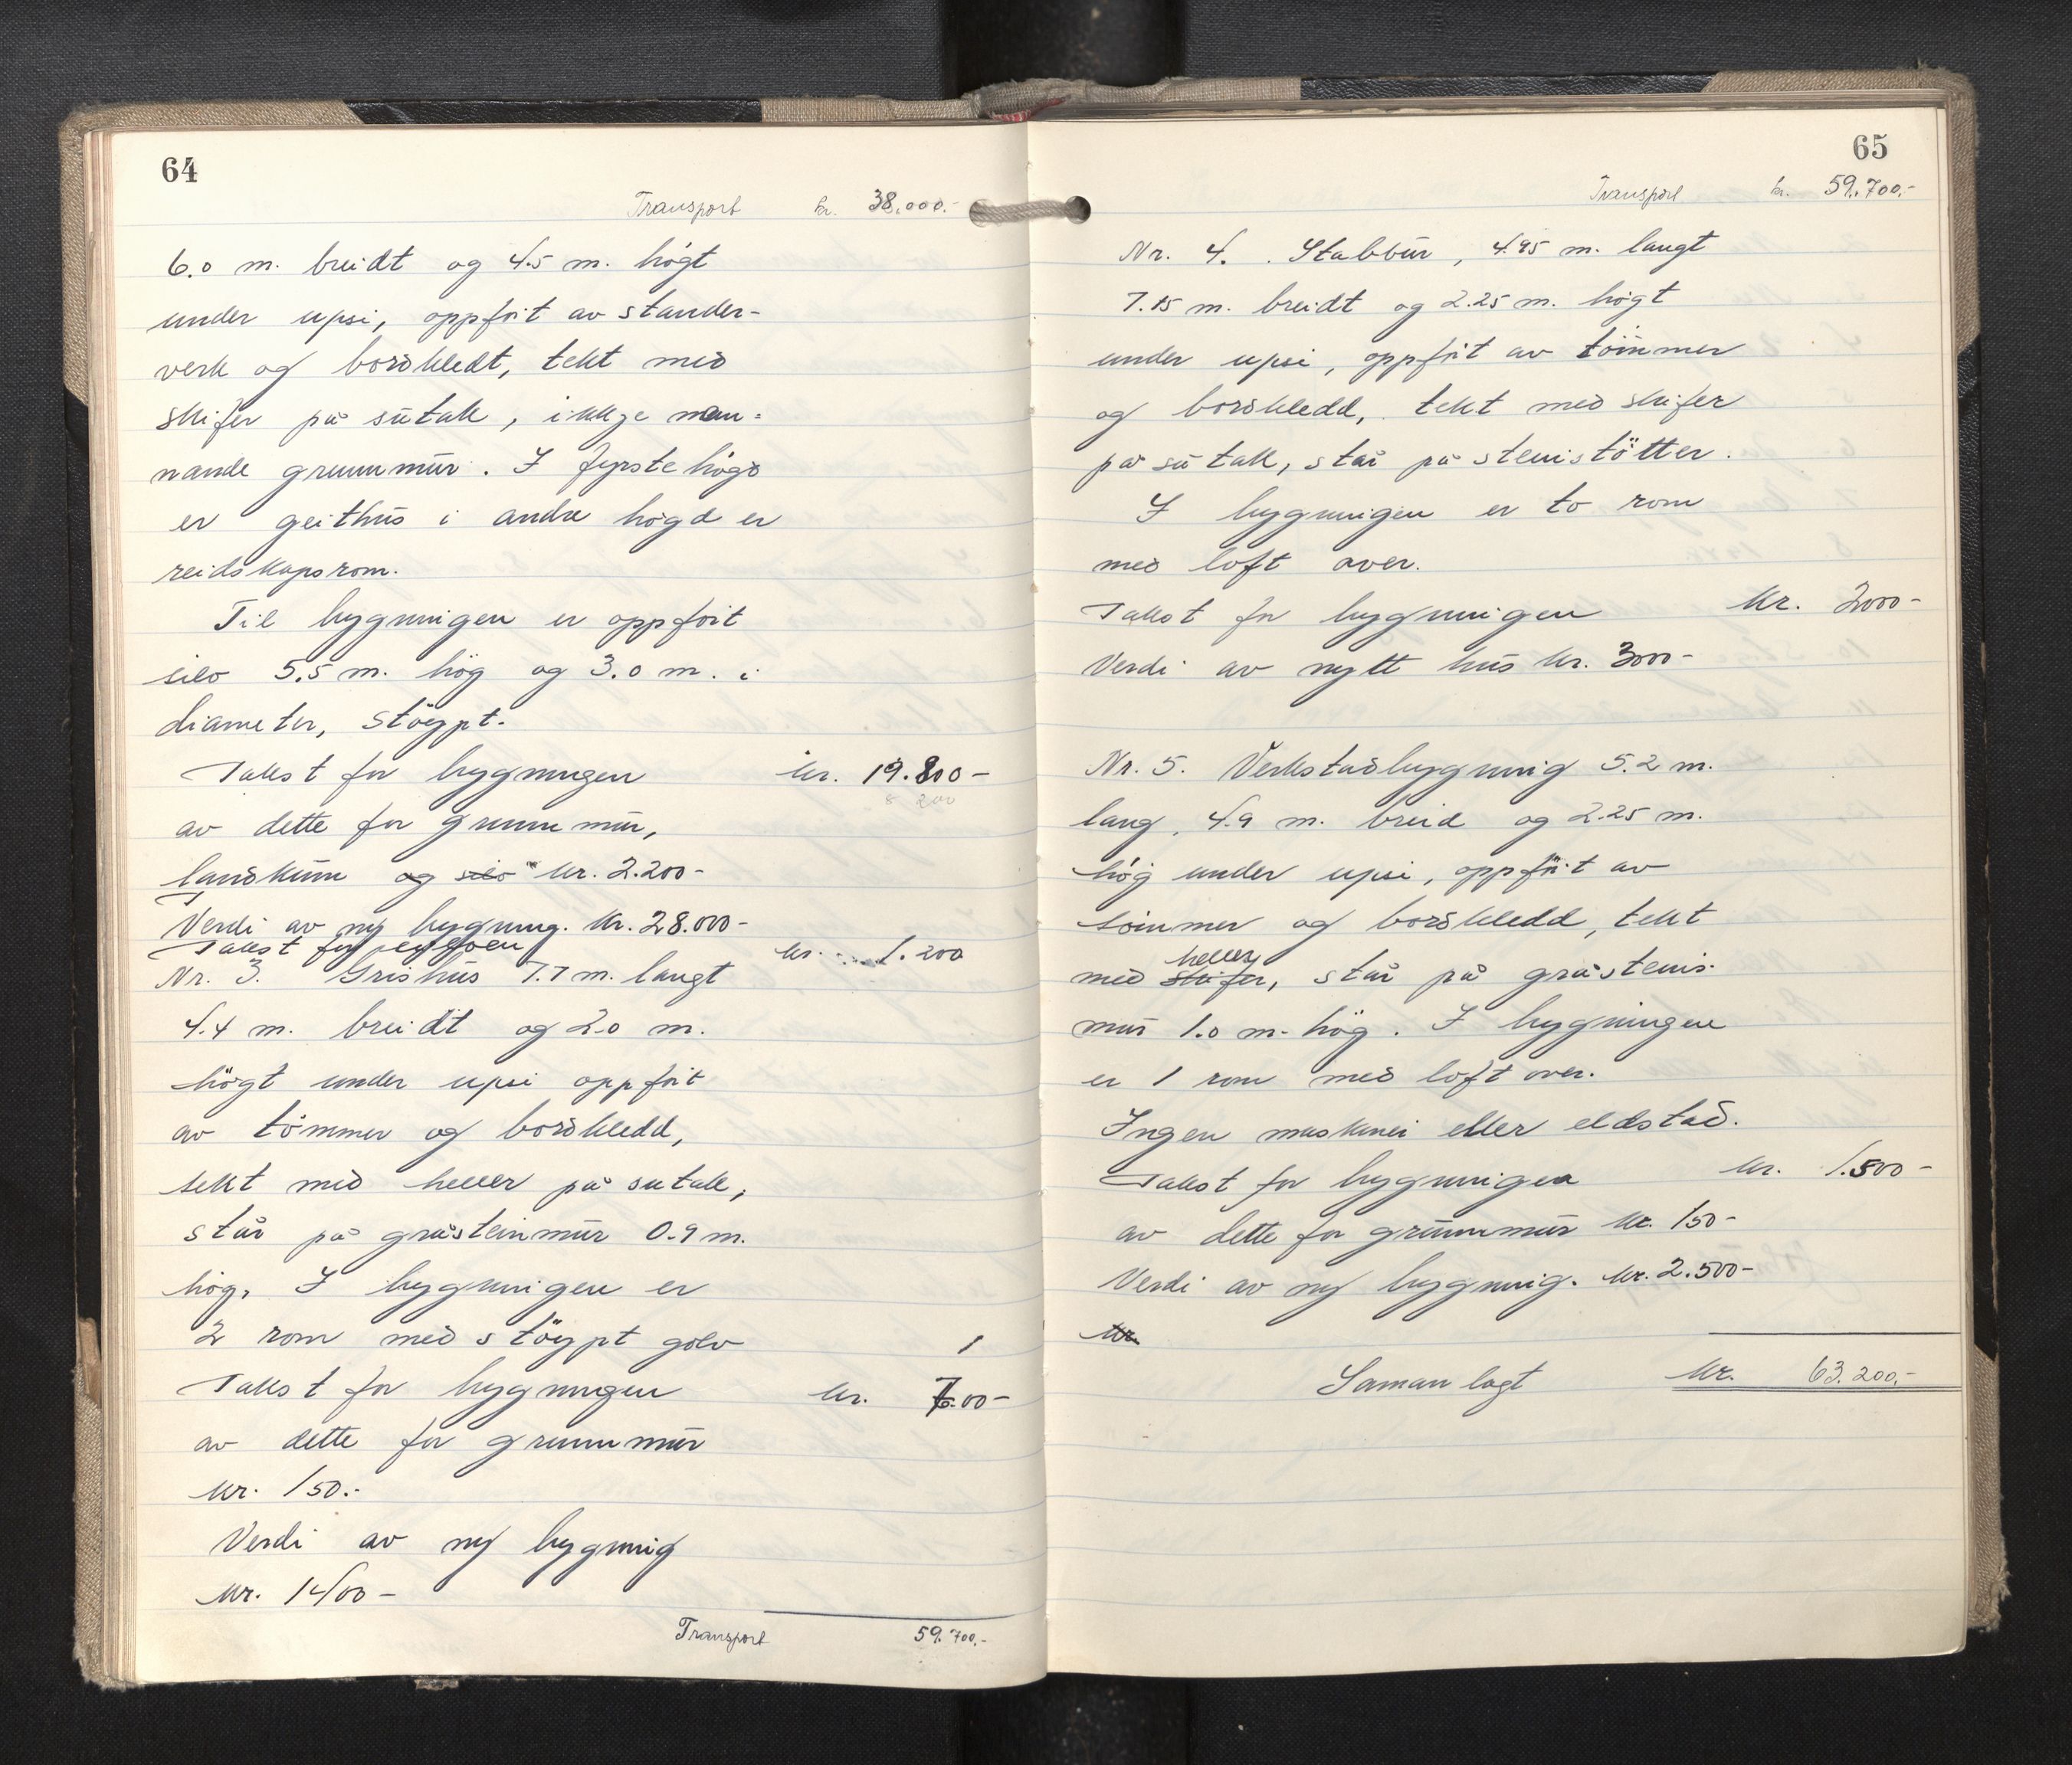 64
Transport kr. 38.000.-
6.0 m. breidt og 4.5 m. högt
under upsi, oppfört av stander-
verk og bordkledt, tekt med
skifer på sutak, ikkje man-
nande grunnmur. I fyrste högd
er geithus i andre högd er
reidskapsrom.
Til bygningen er oppfört
silo 5.5 m. hög og 3.0 m. i
diameter, stöypt.
Takst for bygningen kr. 19.800-
av dette for grunnmur,
landkum og silo kr. 2.200-
Verdi av ny bygning. kr. 28.000-
Takst for kr. 1.200
Nr. 3. Grishus 7.7 m. langt
4.4 m. breidt og 2.0 m.
högt under upsi oppfört
av tömmer og bordkledd,
tekt med heller på sutak,
står på gråsteinmur 0.9 m.
hög. I bygningen er
2 rom med stöypt golv
1
Takst for bygningen kr. 700-
av dette for grunnmur
kr. 150.-
Verdi av ny bygning
kr. 1400-
Transport 59.700.-
65
Transport kr. 59.700.-
Nr. 4. Stabbur, 4.95 m. langt
7.15 m. breidt og 2.25 m. högt
under upsi, oppfört av tömmer
og bordkledd, tekt med skifer
på sutak, står på steinstötter.
I bygningen er to rom
med loft over.
Takst for bygningen kr. 2000-
Verdi av nytt hus kr. 3000-
Nr. 5. Verkstadbygning 5.2 m.
lang, 4.9 m. breid og 2.25 m.
hög under upsi, oppfört av
tömmer og bordkledd, tekt
heller
med skifer, står på gråsteins-
mur 1.0 m. hög. I bygningen
er 1 rom med loft over.
Ingen maskinei eller eldstad.
Takst for bygningen kr. 1.500-
av dette for grunnmur kr. 150-
Verdi av ny bygning. kr. 2.500-
kr.
Saman lagt kr. 63.200.-